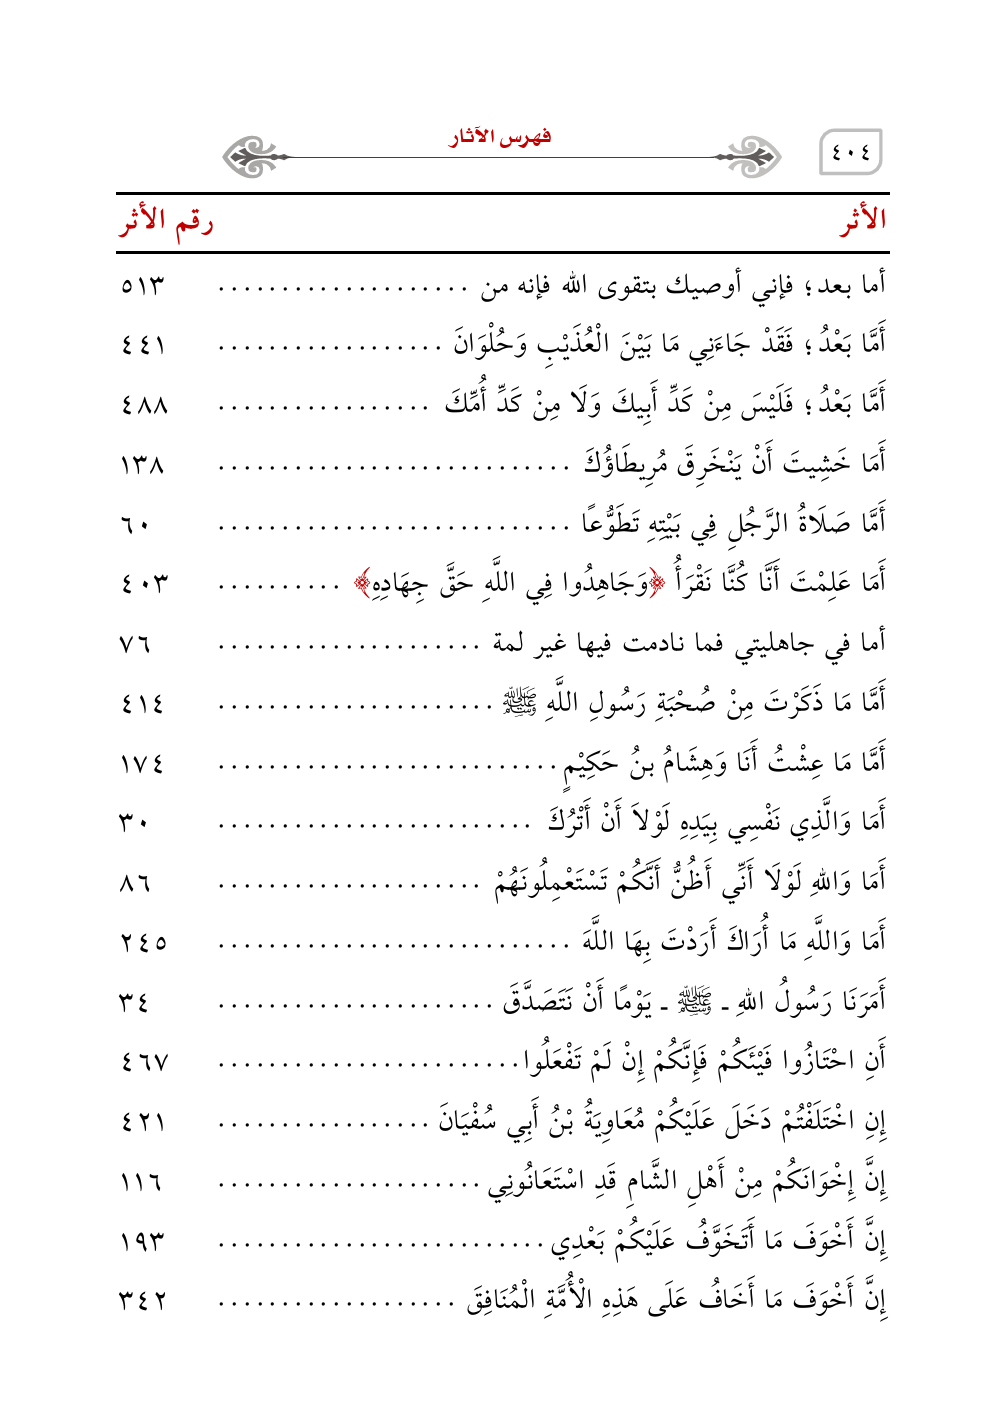 ٤٠٤
فهرس الآثار
الأثر رقم الأثر
أما بعد؛ فإني أوصيك بتقوى الله فإنه من .................... ٥١٣
أَمَّا بَعْدُ؛ فَقَدْ جَاءَنِي مَا بَيْنَ الْعُذَيْبِ وَحُلْوَانَ .................. ٤٤١
أَمَّا بَعْدُ؛ فَلَيْسَ مِنْ كَدِّ أَبِيكَ وَلَا مِنْ كَدِّ أُمِّكَ ................. ٤٨٨
أَمَا خَشِيتَ أَنْ يَنْخَرِقَ مُرِيطَاؤُكَ ............................ ١٣٨
أَمَّا صَلَاةُ الرَّجُلِ فِي بَيْتِهِ تَطَوُّعًا ............................ ٦٠
أَمَا عَلِمْتَ أَنَّا كُنَّا نَقْرَأُ ﴿وَجَاهِدُوا فِي اللَّهِ حَقَّ جِهَادِهِ﴾ .......... ٤٠٣
أما في جاهليتي فما نادمت فيها غير لمة ..................... ٧٦
أَمَّا مَا ذَكَرْتَ مِنْ صُحْبَةِ رَسُولِ اللَّهِ ﷺ ...................... ٤١٤
أَمَّا مَا عِشْتُ أَنَا وَهِشَامُ بنُ حَكِيْمٍ ........................... ١٧٤
أَمَا وَالَّذِي نَفْسِي بِيَدِهِ لَوْلاَ أَنْ أَتْرُكَ ......................... ٣٠
أَمَا وَاللهِ لَوْلَا أَنِّي أَظُنُّ أَنَّكُمْ تَسْتَعْمِلُونَهُمْ ..................... ٨٦
أَمَا وَاللَّهِ مَا أُرَاكَ أَرَدْتَ بِهَا اللَّهَ ............................ ٢٤٥
أَمَرَنَا رَسُولُ اللهِ ـ ﷺ ـ يَوْمًا أَنْ نَتَصَدَّقَ ...................... ٣٤
أَنِ احْتَازُوا فَيْئَكُمْ فَإِنَّكُمْ إِنْ لَمْ تَفْعَلُوا ........................ ٤٦٧
إِنِ اخْتَلَفْتُمْ دَخَلَ عَلَيْكُمْ مُعَاوِيَةُ بْنُ أَبِي سُفْيَانَ ................. ٤٢١
إِنَّ إِخْوَانَكُمْ مِنْ أَهْلِ الشَّامِ قَدِ اسْتَعَانُونِي ..................... ١١٦
إِنَّ أَخْوَفَ مَا أَتَخَوَّفُ عَلَيْكُمْ بَعْدِي .......................... ١٩٣
إِنَّ أَخْوَفَ مَا أَخَافُ عَلَى هَذِهِ الْأُمَّةِ الْمُنَافِقَ ................... ٣٤٢